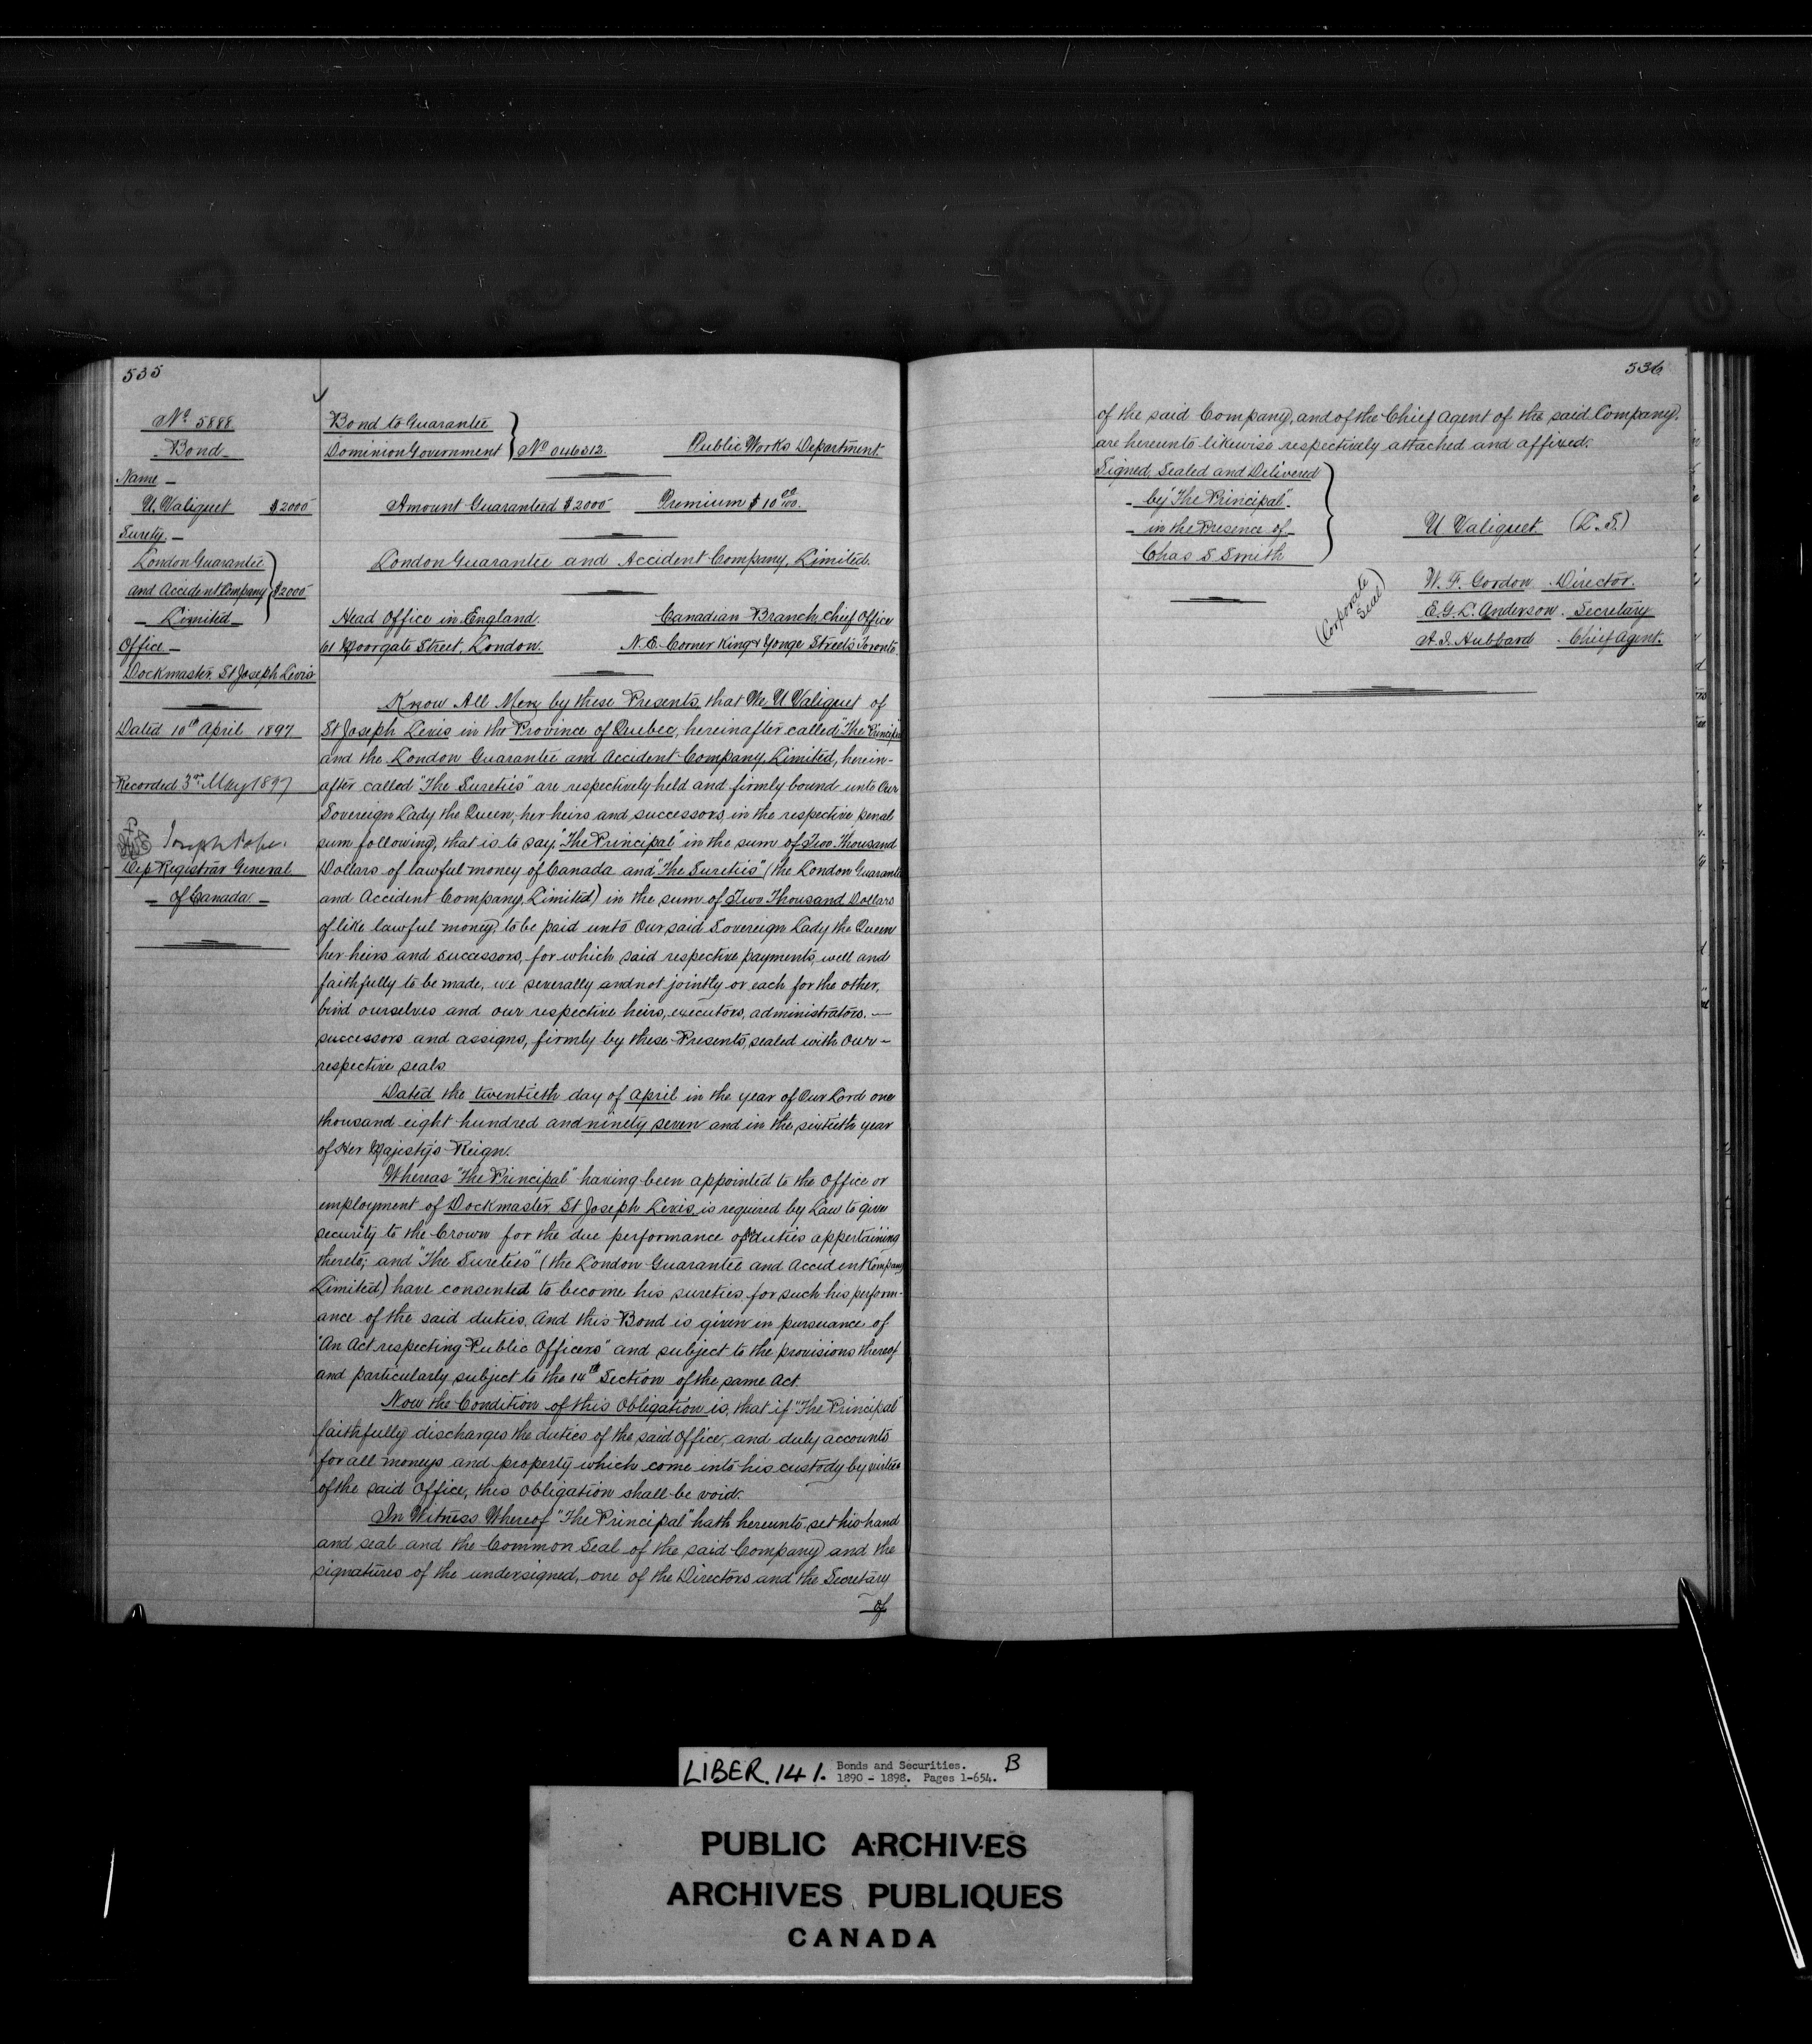 535
No 5888
Bond
Name —
U. Valiquet $2000
Surety. —
London Guarantee
and Accident Company $2000
— Limited —
Office —
Dockmaster St Joseph Levis
Dated 10th April 1897
Recorded 3rd May 1897
Joseph Pope.
Dep Registrar General
— of Canada. —
Bond to Guarantee
Dominion Government No 046312. Public Works Department.
Amount Guaranteed $2000 Premium $10 00/100.
London Guarantee and Accident Company, Limited.
Head Office in England. Canadian Branch, Chief Office
61 Moorgate Street, London. N.E. Corner King & Yonge Streets Toronto.
Know All Men by these Presents, that We U Valiquet of
St Joseph Levis in the Province of Quebec, hereinafter called "The Principal"
and the London Guarantee and Accident Company, Limited, herein-
after called "The Sureties" are respectively held and firmly bound unto Our
Sovereign Lady the Queen, her heirs and successors, in the respective penal
sum following, that is to say, "The Principal" in the sum of Two Thousand
Dollars of lawful money of Canada and "The Sureties" (the London Guarantee
and Accident Company, Limited) in the sum of Two Thousand Dollars
of like lawful money, to be paid unto Our said Sovereign Lady the Queen
her heirs and successors, for which said respective payments, well and
faithfully to be made, we severally and not jointly or each for the other,
bind ourselves and our respective heirs, executors, administrators. —
successors and assigns, firmly by these Presents, sealed with our —
respective seals.
Dated the twentieth day of April in the year of Our Lord one
thousand eight hundred and ninety seven and in the sixtieth year
of Her Majesty's Reign.
Whereas "The Principal" having been appointed to the Office or
employment of Dockmaster St Joseph Levis is required by Law to give
security to the Crown for the due performance of the duties appertaining
thereto; and "The Sureties" (the London Guarantee and Accident Company
Limited) have consented to become his sureties for such his perform-
ance of the said duties, And this Bond is given in pursuance of
"An Act respecting Public Officers" and subject to the provisions thereof
and particularly subject to the 14th Section of the same Act.
Now the Condition of this Obligation is, that if "The Principal"
faithfully discharges the duties of the said Office, and duly accounts
for all moneys and property which come into his custody by virtue
of the said Office, this Obligation shall be void.
In Witness Whereof "The Principal" hath hereunto set his hand
and seal and the Common Seal of the said Company and the
signatures of the undersigned, one of the Directors and the Secretary
of
536
of the said Company, and of the Chief Agent of the said Company.
are hereunto likewise respectively attached and affixed.
Signed, Sealed and Delivered
— by "The Principal" —
— in the Presence of —
Chas S Smith
U Valiquet (L.S.)
(Corporate
Seal)
W. F. Gordon. Director.
E. G. L. Anderson. Secretary
Chief Agent.
LIBER. 141. Bonds and Securities. B
1890 - 1898. Pages 1-654.
PUBLIC ARCHIVES
ARCHIVES PUBLIQUES
CANADA